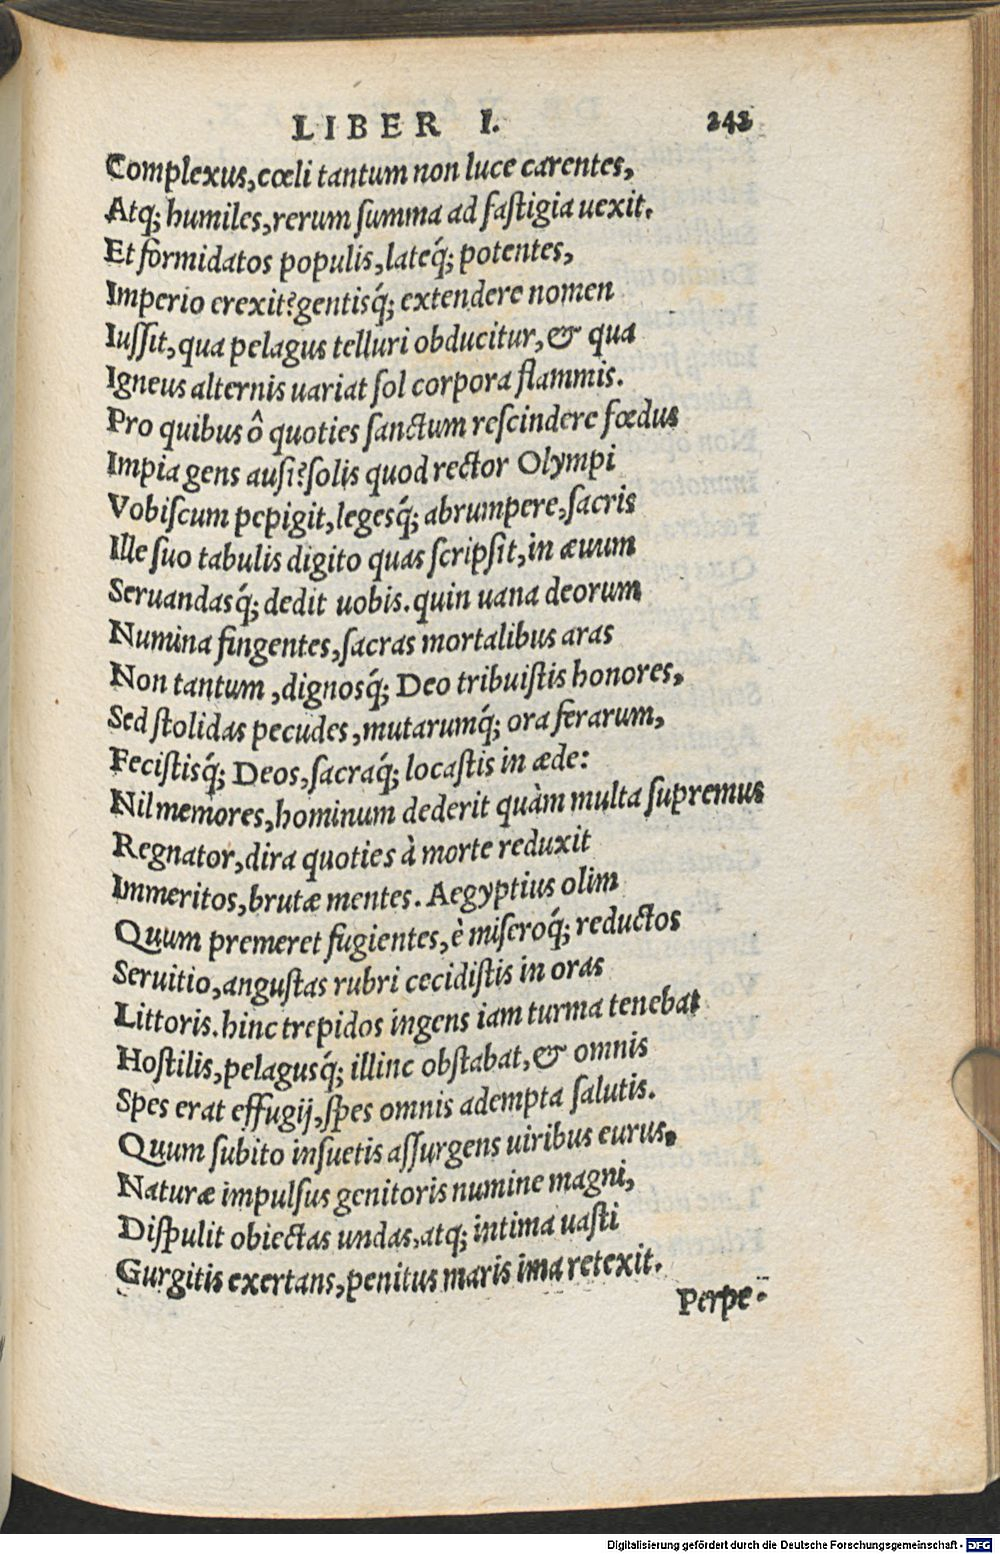 LIBER I. 242
Complexus, cœli tantum non luce carentes,
Atq; humiles, rerum summa ad fastigia uexit.
Et formidatos populis, lateq́; potentes,
Imperio erexit? gentisq́; extendere nomen
Iussit, qua pelagus telluri obducitur, & qua
Igneus alternis uariat sol corpora flammis.
Pro quibus ô quoties sanctum rescindere fœdus
Impia gens ausi? solis quod rector Olympi
Vobiscum pepigit, legesq́; abrumpere, sacris
Ille suo tabulis digito quas scripsit, in æuum
Seruandasq́; dedit uobis. quin uana deorum
Numina fingentes, sacras mortalibus aras
Non tantum, dignosq́; Deo tribuistis honores,
Sed stolidas pecudes, mutarumq́; ora ferarum,
Fecistisq́; Deos, sacraq́; locastis in æde:
Nil memores, hominum dederit quàm multa supremus
Regnator, dira quoties à morte reduxit
Immeritos, brutæ mentes. Aegyptius olim
Quum premeret fugientes, è miseroq́; reductos
Seruitio, angustas rubri cecidistis in oras
Littoris. hinc trepidos ingens iam turma tenebat
Hostilis, pelagusq́; illinc obstabat, & omnis
Spes erat effugij, spes omnis adempta salutis.
Quum subito insuetis assurgens uiribus eurus,
Naturæ impulsus genitoris numine magni,
Dispulit obiectas undas, atq; intima uasti
Gurgitis exertans, penitus maris ima retexit.
Perpe-
Digitalisierung gefördert durch die Deutsche Forschungsgemeinschaft - DFG